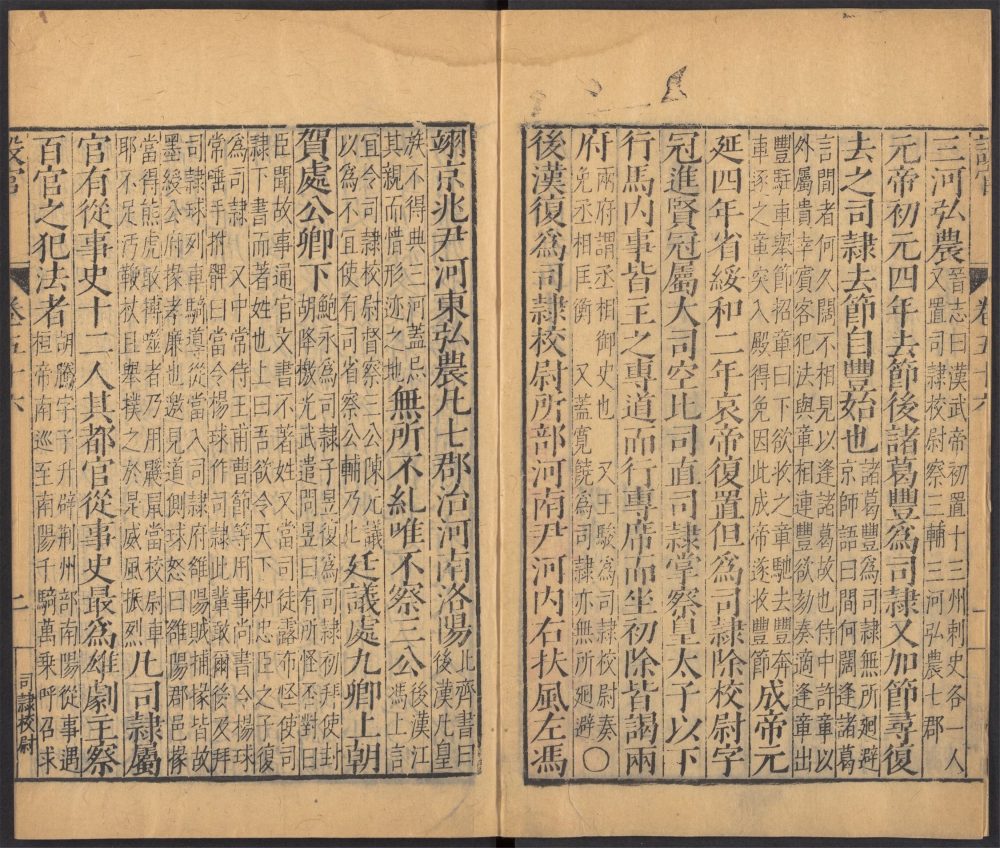 設官 卷五十六
三河弘農
晉志曰漢武帝初置十三州刺史各一人
又置司隸校尉察三輔三河弘農七郡
元帝初元四年去節後諸葛豐爲司隸又加節尋復
去之司隸去節自豐始也
諸葛豐爲司隸無所迴避
京師語曰間何闊逢諸葛
言間者何久闊不相見以逢諸葛故也侍中許章以
外屬貴幸賓客犯法與章相連豐欲劾奏適逢章出
豐駐車舉節招章曰下欲收之章馳去豐奔
車逐之章突入殿得免因此成帝遂收豐節
成帝元
延四年省綏和二年哀帝復置但爲司隸除校尉字
冠進賢冠屬大司空比司直司隸掌察皇太子以下
行馬內事皆主之專道而行專席而坐初除皆謁兩
府
兩府謂丞相御史也 又王駿爲司隸校尉奏
免丞相匡衡 又蓋寬饒爲司隸亦無所迴避
○
後漢復爲司隸校尉所部河南尹河內右扶風左馮
翊京兆尹河東弘農凡七郡治河南洛陽
北齊書曰
後漢凡皇
族不得典三河蓋忌
其親而惜形迹之地
無所不糺唯不察三公
後漢江
馮上言
宜令司隸校尉督察三公陳元議
以爲不宜使有司省察公輔乃止
廷議處九卿上朝
賀處公卿下
鮑永爲司隸子昱後爲司隸初拜使封
胡降檄光武遣問昱曰有所怪丕對曰
臣聞故事通官文書不著姓又當司徒露布怪使司
隸下書而著姓也上曰吾欲令天下知忠臣之子復
爲司隸 又中常侍王甫曹節等用事尚書令楊球
常唾手拊髀曰當令楊球作司隸此輩敢爾後及拜
司隸球列車騎導從當入司隸府雒陽賊捕掾皆故
墨綬公府掾孝廉也邀見道側球怒曰雒陽郡邑掾
當得熊虎敢搏噬者乃用羸𡱈當校尉車
耶不足污鞭杖且舉樸之於是威風振烈
凡司隸屬
官有從事史十二人其都官從事史最爲雄劇主察
百官之犯法者
胡騰字子升辟荆州部南陽從事遇
桓帝南巡至南陽千騎萬乘呼召求
設官 卷五十六 二 司隸校尉